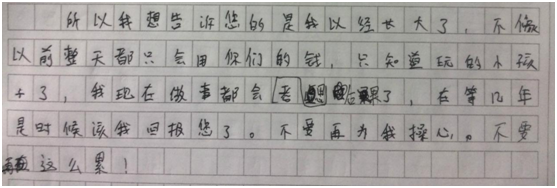 所以我想告诉您的是我以经长大了，不像
以前整天都只会用你们的钱，只知道玩的小孩
子了，我现在做事都会考虑后果了，在等几年
是时候该我回报您了。不要再为我操心。不要
这么累！